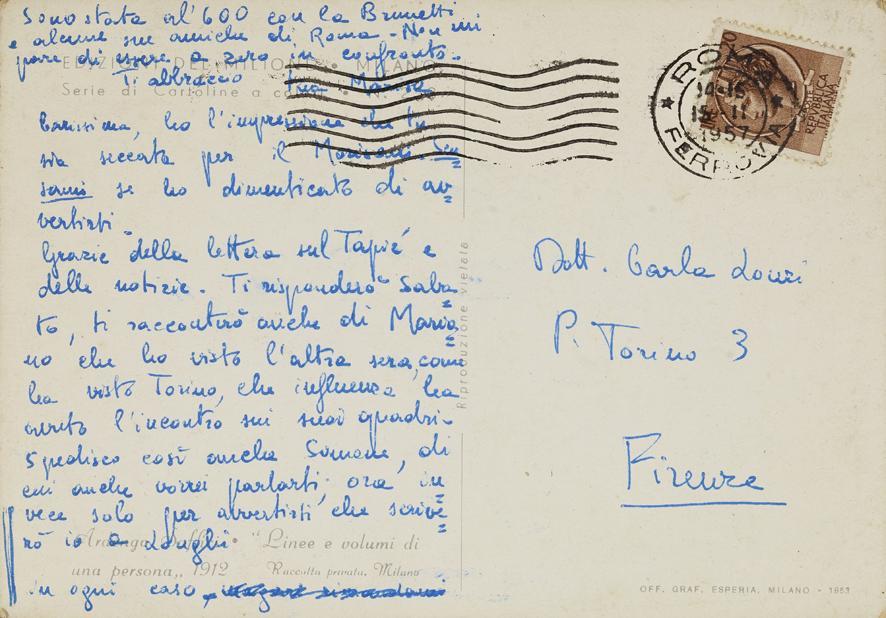 Sono stata al '600 con la Brunetti
e alcune sue amiche di Roma - Non mi
pare di essere a zero in confronto.
Ti abbraccio tua Marisa
EDIZIONI DEL MILIONE • MILANO
Serie di Cartoline a co
Carissima, ho l'impressione che tu
sia seccata per il
se ho dimenticato di av
vertirti.
Grazie della lettera sul Tapié e
delle notizie. Ti risponderò Saba
to, ti racconterò anche di Maria
no che ho visto l'altra sera, come
ha visto Torino, che influenza ha
avuto l'incontro sui suoi quadri.
Spedisco così anche Somaré, di
cui anche vorrei parlarti, ora in
vece solo per avvertirti che scrive
rò io a Longhi
in ogni caso,
Ardengo Soffici • "Linee e volumi di
una persona,, 1912 Raccolta privata, Milano
Riproduzione vietata
20
REPUBBLICA
ITALIANA
ROMA
FERROVIA
14-15
15 II
1957
Dott. Carla Lonzi
P. Torino 3
Firenze
OFF. GRAF. ESPERIA, MILANO - 1953